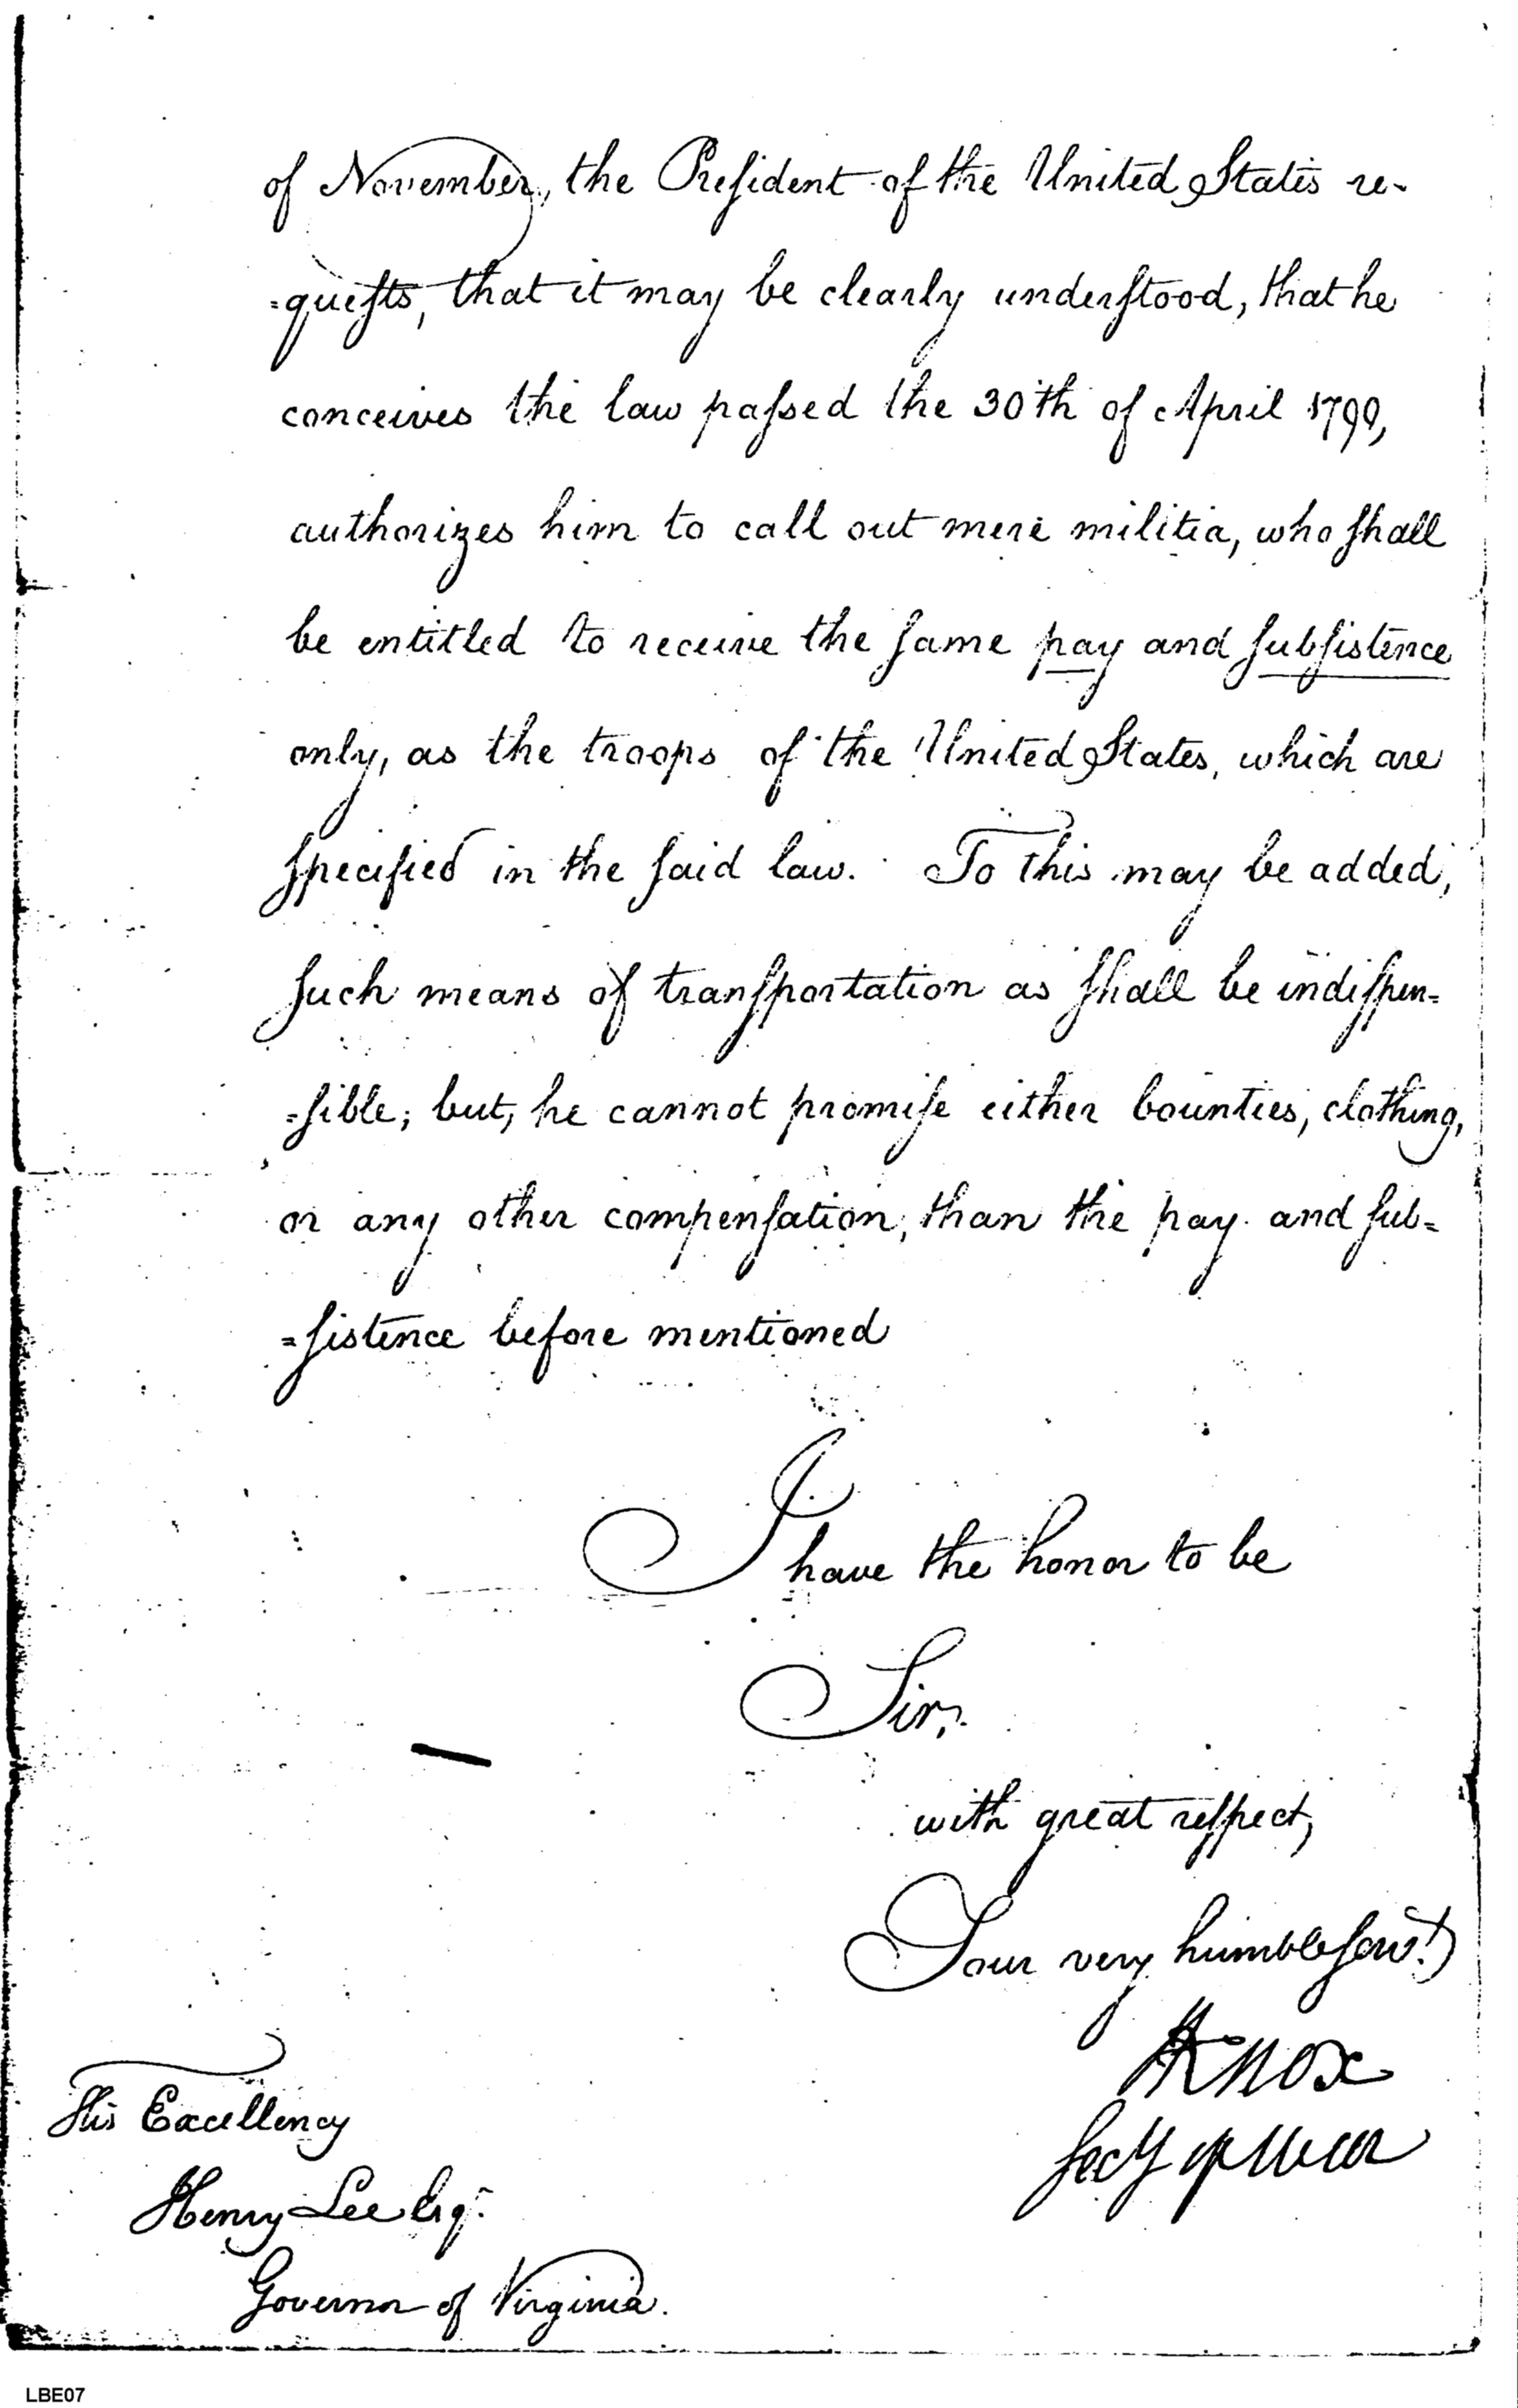 of November, the President of the United States re-
=quests, that it may be clearly understood, that he
conceives the law passed the 30th of April 1790,
authorizes him to call out mere militia, who shall
be entitled to receive the same pay and subsistence
only, as the troops of the United States, which are
specified in the said law. To this may be added,
such means of transportation as shall be indispen=
=sible; but, he cannot promise either bounties, clothing,
or any other compensation, than the pay and sub=
=sistence before mentioned
I have the honor to be
Sir,
with great respect,
Your very humble servt.
HKnox
secy of war
His Excellency
Henry Lee Esqr.
Governor of Virginia.
LBE07